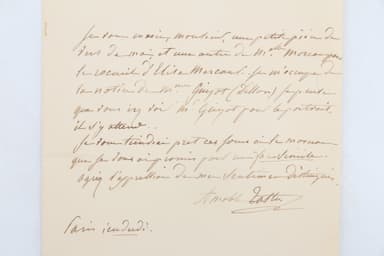 Je vous envoie, monsieur, une petite pièce de
vers de moi, et une autre de M.elle Mercœur
le recueil d'Elisa Mercœur. Je m'occupe de
la notice de Mme Guizot (Dillon)
que vous M. Guizot pour le portrait,
il s'y attend.
Je vous prêt ces jours où le morceau
que je vous ai promis pour
l'expression de mes sentimens distingués.
Amable Tastu
Paris jeudi.